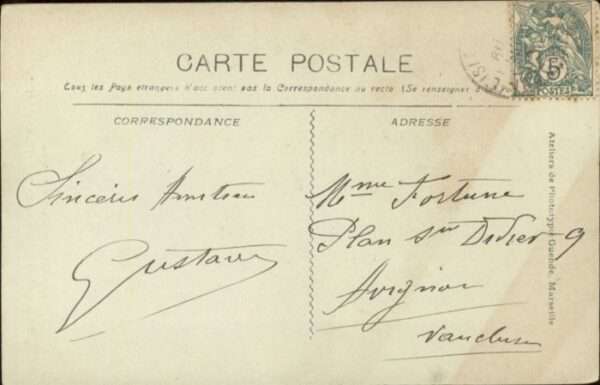 CARTE POSTALE
Tous les Pays étrangers n'acceptent pas la Correspondance au recto (Se renseigner
CORRESPONDANCE
ADRESSE
Sincères Amitiés
Gustave
Mme Fortune
Plan St Didier 9
Avignon
Vaucluse
Ateliers de Phototypie Guende, Marseille
5c
POSTES